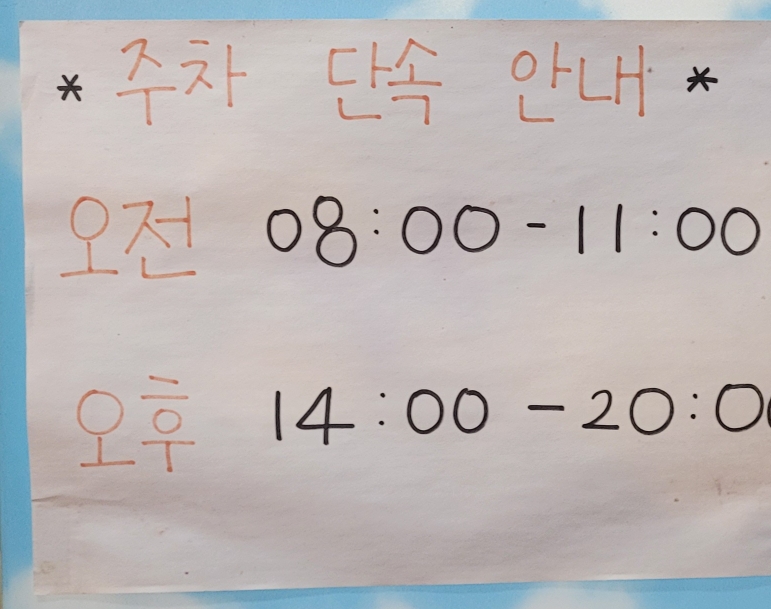 * 주차 단속 안내 *
오전 08:00 - 11:00
오후 14:00 - 20:00